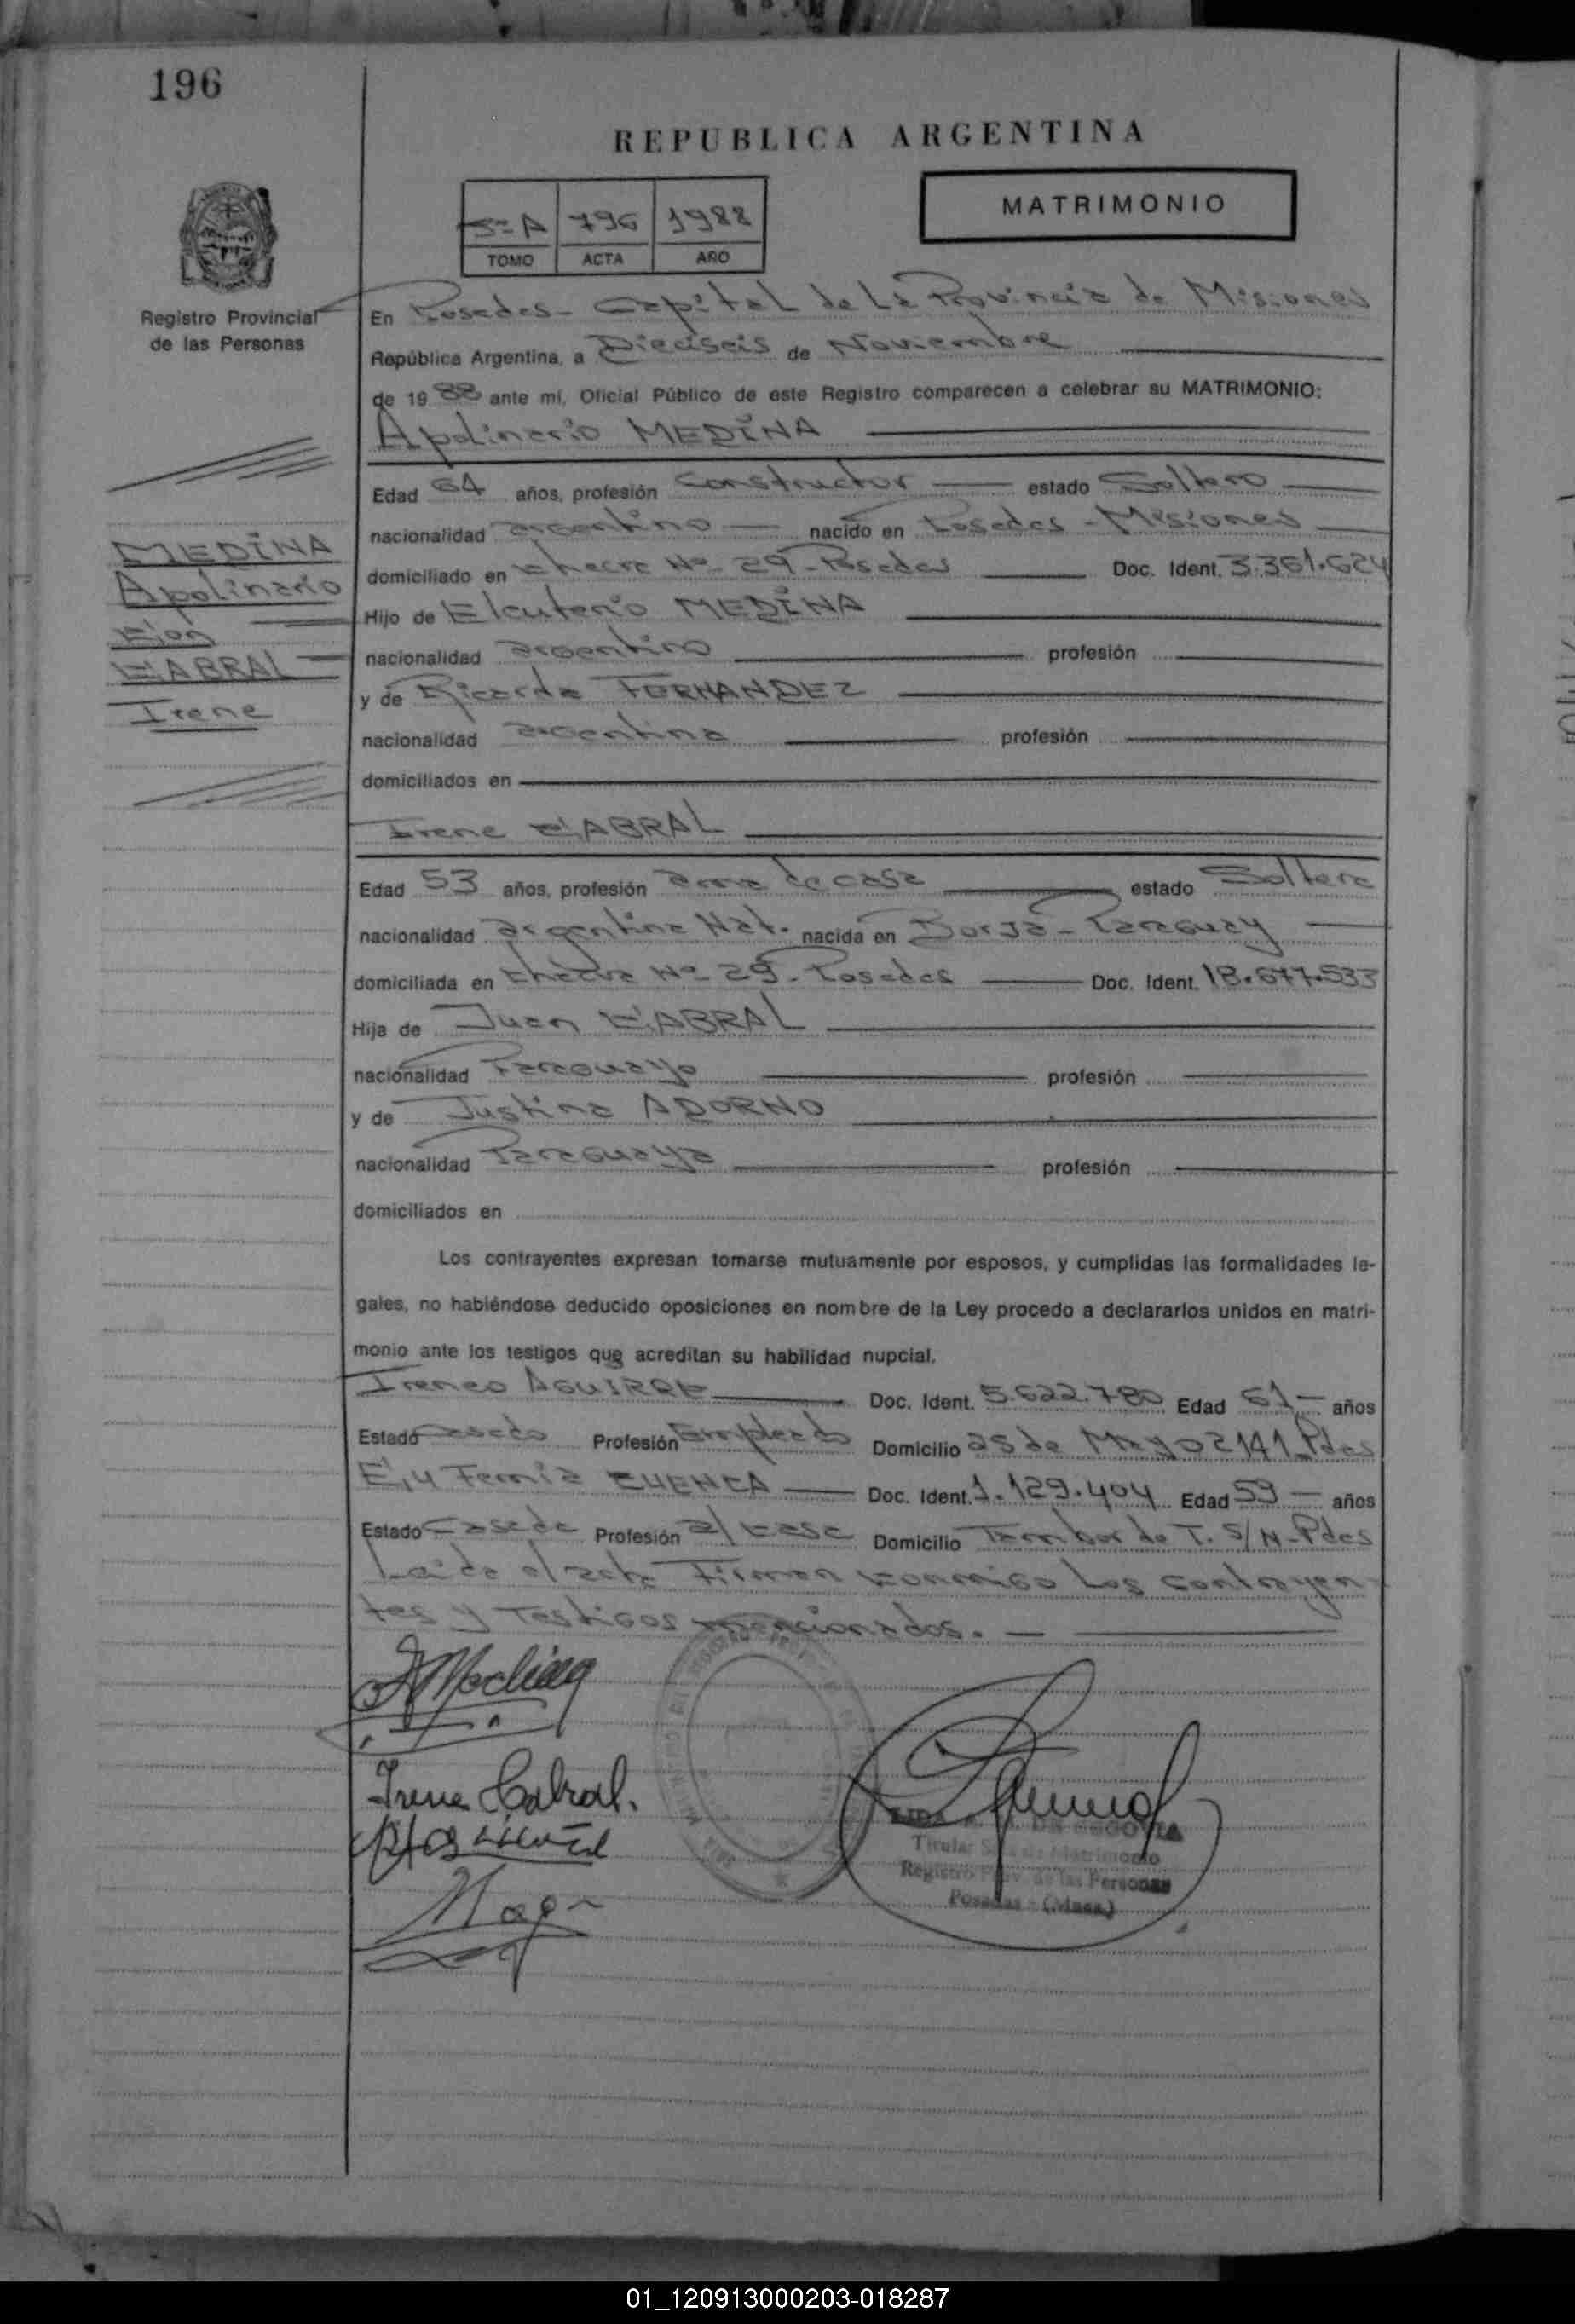 196
REPUBLICA ARGENTINA
MATRIMONIO
5º A 796 1988
TOMO ACTA AÑO
Registro Provincial
de las Personas
En Posadas - Capital de La Provincia de Misiones
República Argentina, a Dieciseis de Noviembre
de 1988 ante mí, Oficial Público de este Registro comparecen a celebrar su MATRIMONIO:
Apolinario MEDINA
Edad 64 años, profesión Constructor estado Soltero
nacionalidad argentino nacido en Posadas - Misiones
domiciliado en Chacra Nº 29 - Posadas Doc. Ident. 3.361.624
Hijo de Eleuterio MEDINA
nacionalidad argentino profesión
y de Ricarda FERNANDEZ
nacionalidad argentina profesión
domiciliados en
Irene CABRAL
Edad 53 años, profesión ama de casa estado Soltera
nacionalidad argentina Nat. nacida en Borja - Paraguay
domiciliada en Chacra Nº 29 - Posadas Doc. Ident. 18.677.533
Hija de Juan CABRAL
nacionalidad Paraguayo profesión
y de Justina ADORNO
nacionalidad Paraguaya profesión
domiciliados en
MEDINA
Apolinario
Con
CABRAL
Irene
Los contrayentes expresan tomarse mutuamente por esposos, y cumplidas las formalidades le-
gales, no habiéndose deducido oposiciones en nombre de la Ley procedo a declararlos unidos en matri-
monio ante los testigos que acreditan su habilidad nupcial.
Ireneo AGUIRRE Doc. Ident. 5.622.780 Edad 61 años
Estado Casado Profesión Empleado Domicilio 25 de Mayo 2141 Pdas
Eufemia CUENCA Doc. Ident. 1.129.404 Edad 59 años
Estado Casada Profesión a/ casa Domicilio Tambor de T. S/N - Pdas
Leida el acta Firman conmigo Los contrayen
tes y Testigos mencionados.
A Medina
Irene Cabral.
DE SEGOVIA
Titular Sec. de Matrimonio
Registro Prov. de las Personas
Posadas - (Mnes.)
01_120913000203-018287